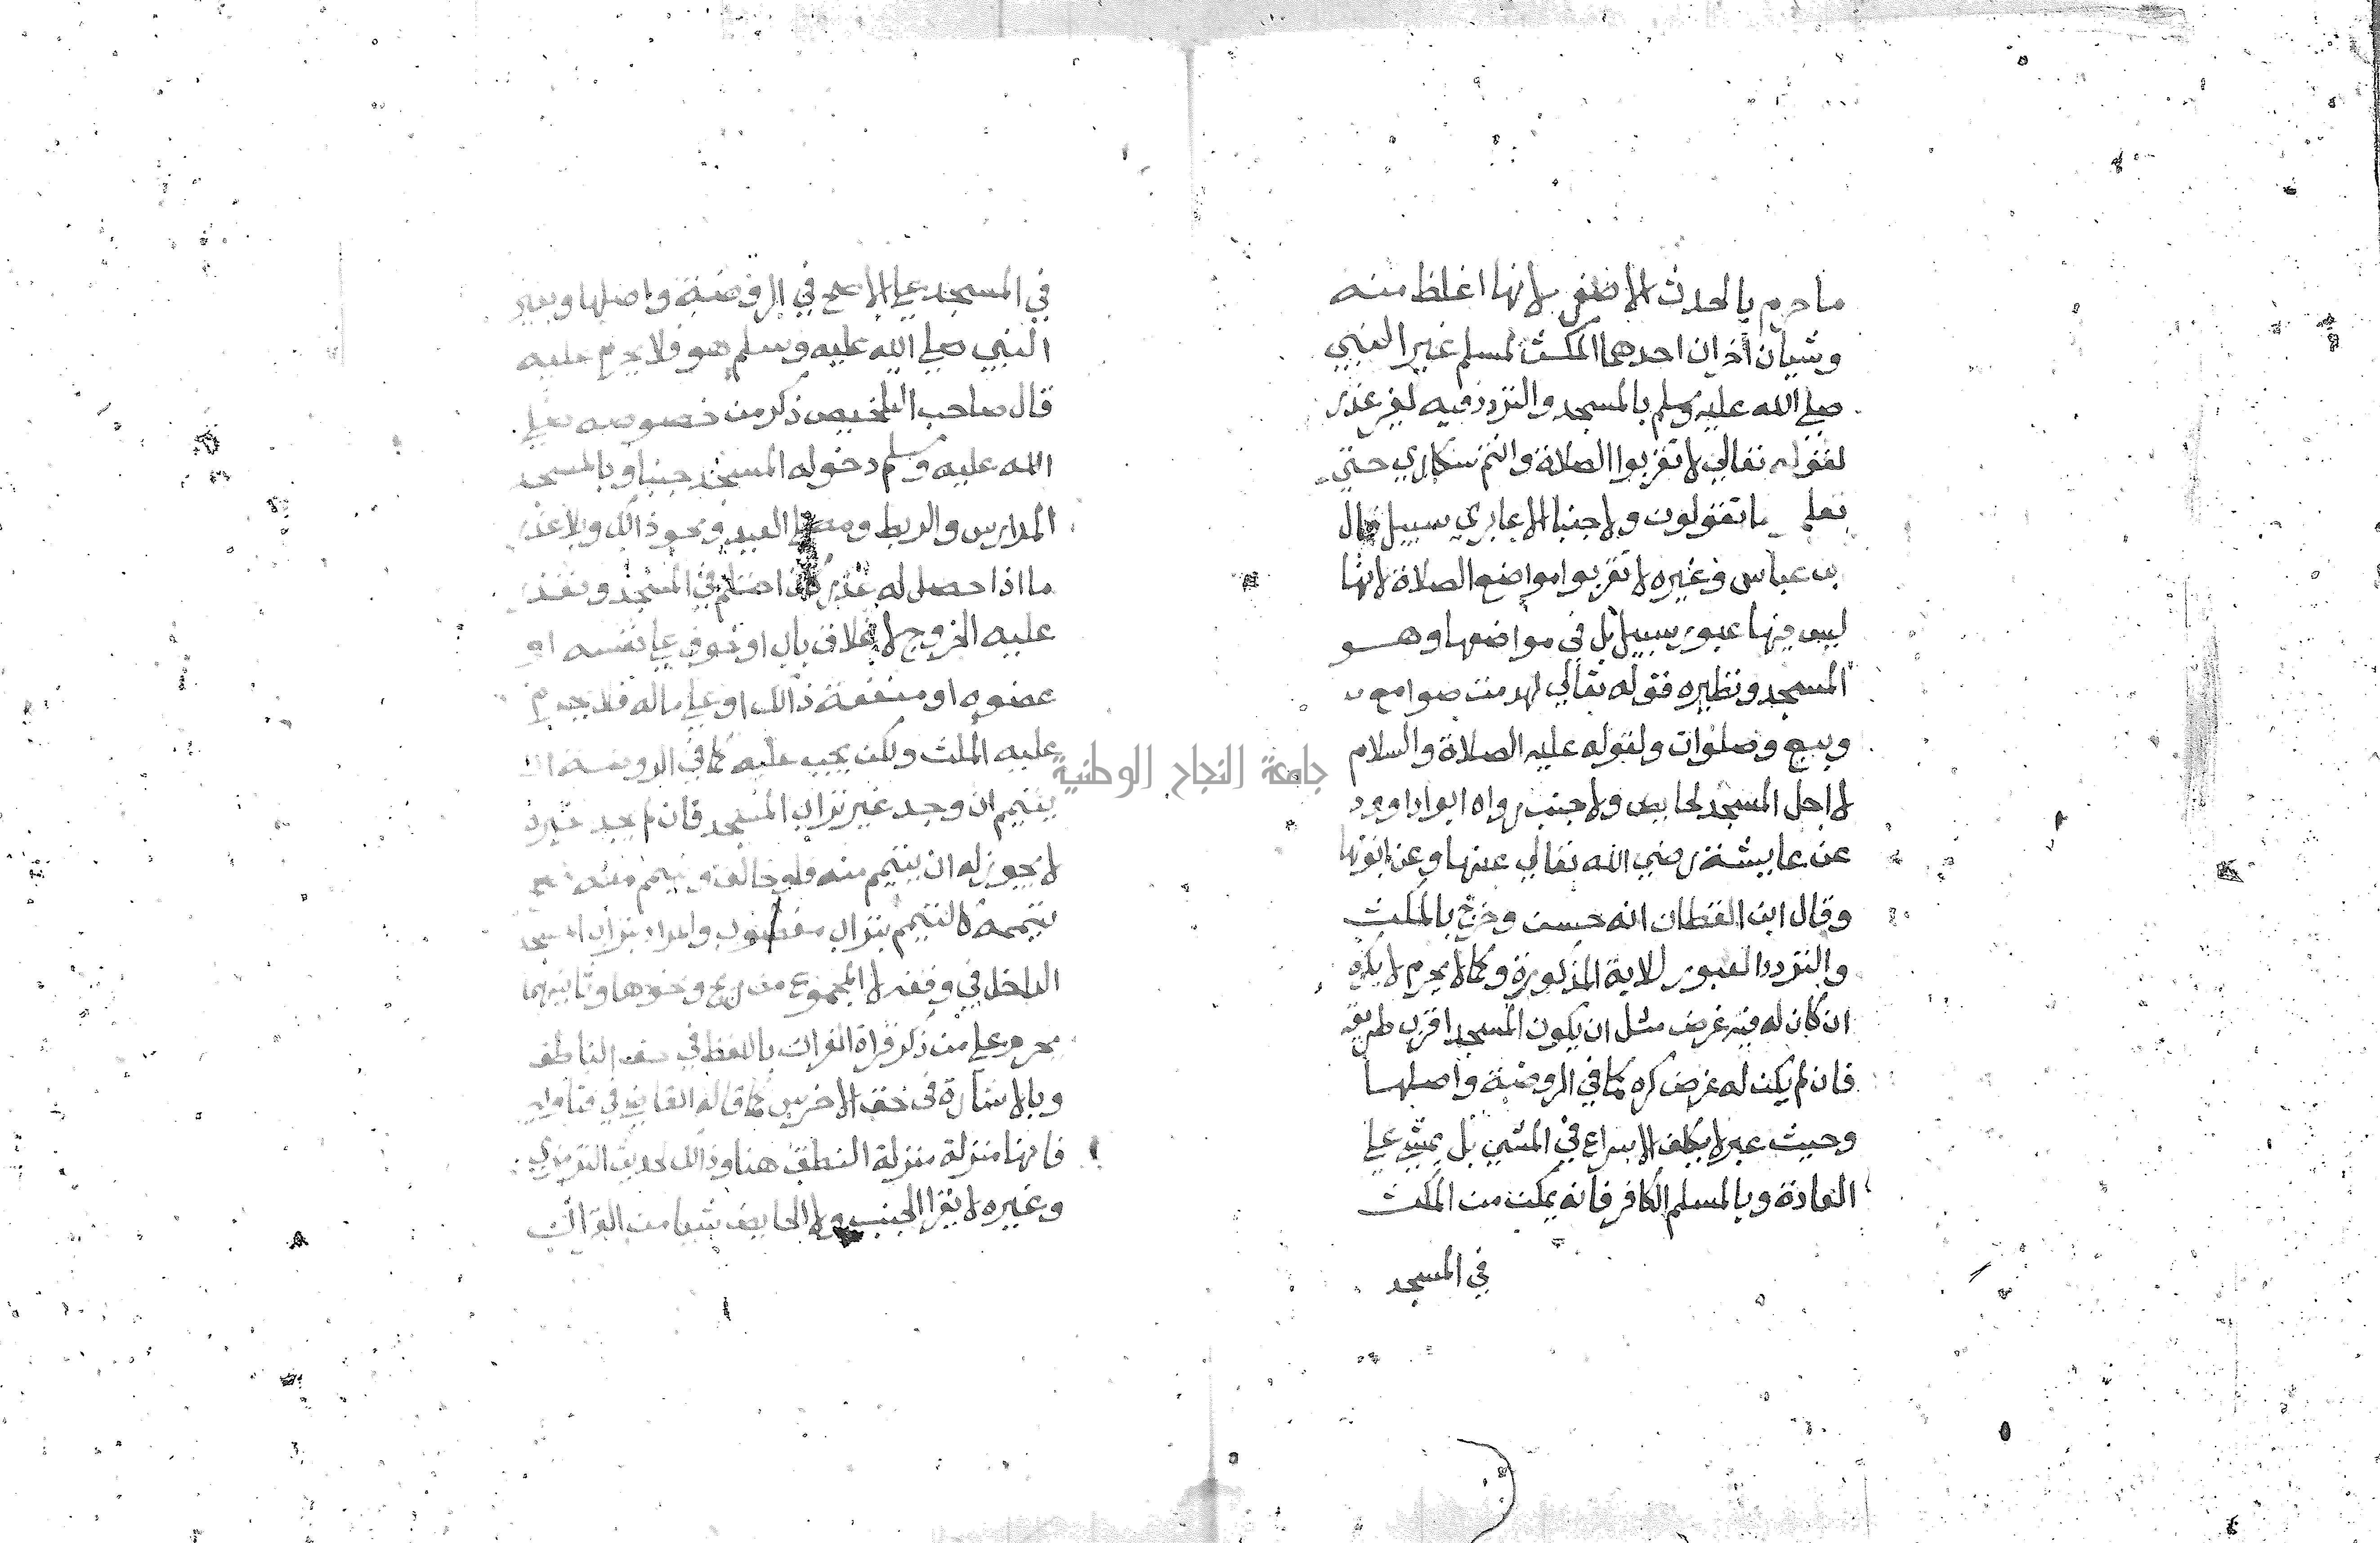 ما حرم بالحدث الاصغر لانها اغلظ منه
وشيان اخران احدهما المكث لمسلم غير النبي
صلي الله عليه وسلم بالمسجد والتردد فيه لغير عذر
لقوله تعالي لا تقربوا الصلاة وانتم سكاري حتي
تعلموا ما تقولون ولا جنبا الا عابري سبيل قال
بن عباس وغيره لا تقربوا مواضع الصلاة لانها
ليس فيها عبور سبيل بل في مواضعها وهو
المسجد ونظيره قوله تعالي لهدمت صوامع
وبيع وصلوات ولقوله عليه الصلاة والسلام
لا احل المسجد لحايض ولا جنب رواه ابوا داوود
عن عايشة رضي الله تعالي عنها وعن ابويها
وقال ابن القطان انه حسن وخرج بالمكث
والتردد العبور للاية المذكورة وكما لا يحرم لا يكره
ان كان له فيه غرض مثل ان يكون المسجد اقرب طريقه
فان لم يكن له غرض كره كما في الروضة واصلها
وحيث عبر لا يكلف الاسراع في المشي بل يمشي علي
العادة وبالمسلم الكافر فانه يمكن من المكث
في المسجد
في المسجد علي الاصح في الروضة واصلها وبغير
النبي صلي الله عليه وسلم هو فلا يحرم عليه
قال صاحب التلخيص ذكر من خصوصه صلي
الله عليه وسلم دخوله المسجد جنبا وبالمسجد
المدارس والربط ومصلي العيد ونحو ذالك وبلا عذر
ما اذا حصل له عذر كان احتلم في المسجد وتعذر
عليه الخروج لاغلاق باب او خوف علي نفسه او
عضوه او منفعة ذالك او علي ماله فلا يحرم
عليه المكث ولكن يجب عليه كما في الروضة ان
يتيمم ان وجد غير تراب المسجد فان لم يجد غيره
لا يجوز له ان يتيمم منه فلو خالف وتيمم منه صح
تيممه كالتيمم بتراب مغصوب والمراد بتراب المسجد
الداخل في وقفه لا المجموع من ريح ونحوها وثانيهما
يحرم علي من ذكر قراة القران باللفظ في حق الناطق
وبالاشارة في حق الاخرس كما قاله القاضي في فتاويه
فانها منزلة منزلة النطق هنا وذالك لحديث الترمذي
وغيره لا يقرا الجنب ولا الحايض شيا من القران
جامعة النجاح الوطنية